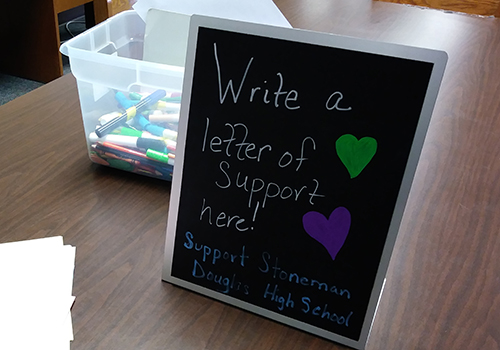 Write a
letter of
Support
here!
Support Stoneman
Douglis High School